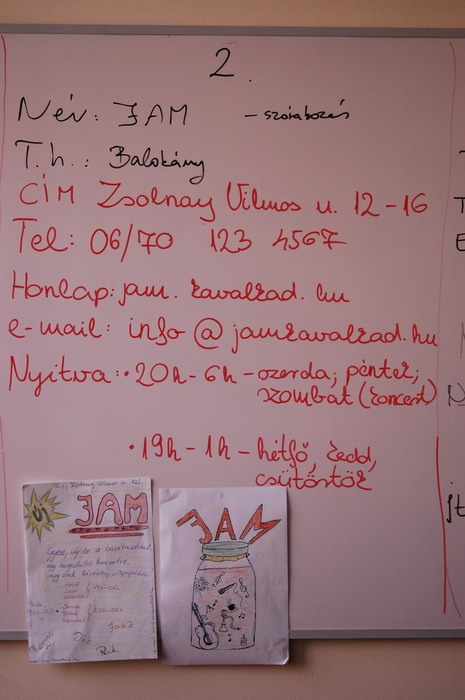 2.
Név: JAM - szórakozás
T.h.: Balokány
CÍM Zsolnay Vilmos u. 12-16
Tel: 06/70 123 4567
Honlap: jam.kavalkad.hu
e-mail: info@jamkavalkad.hu
Nyitva: • 20h-6h - szerda; péntek;
szombat (koncert)
• 19h-1h - hétfő, kedd,
csütörtök
Zsolnay Vilmos u. 12
ÚJ
JAM
JAM